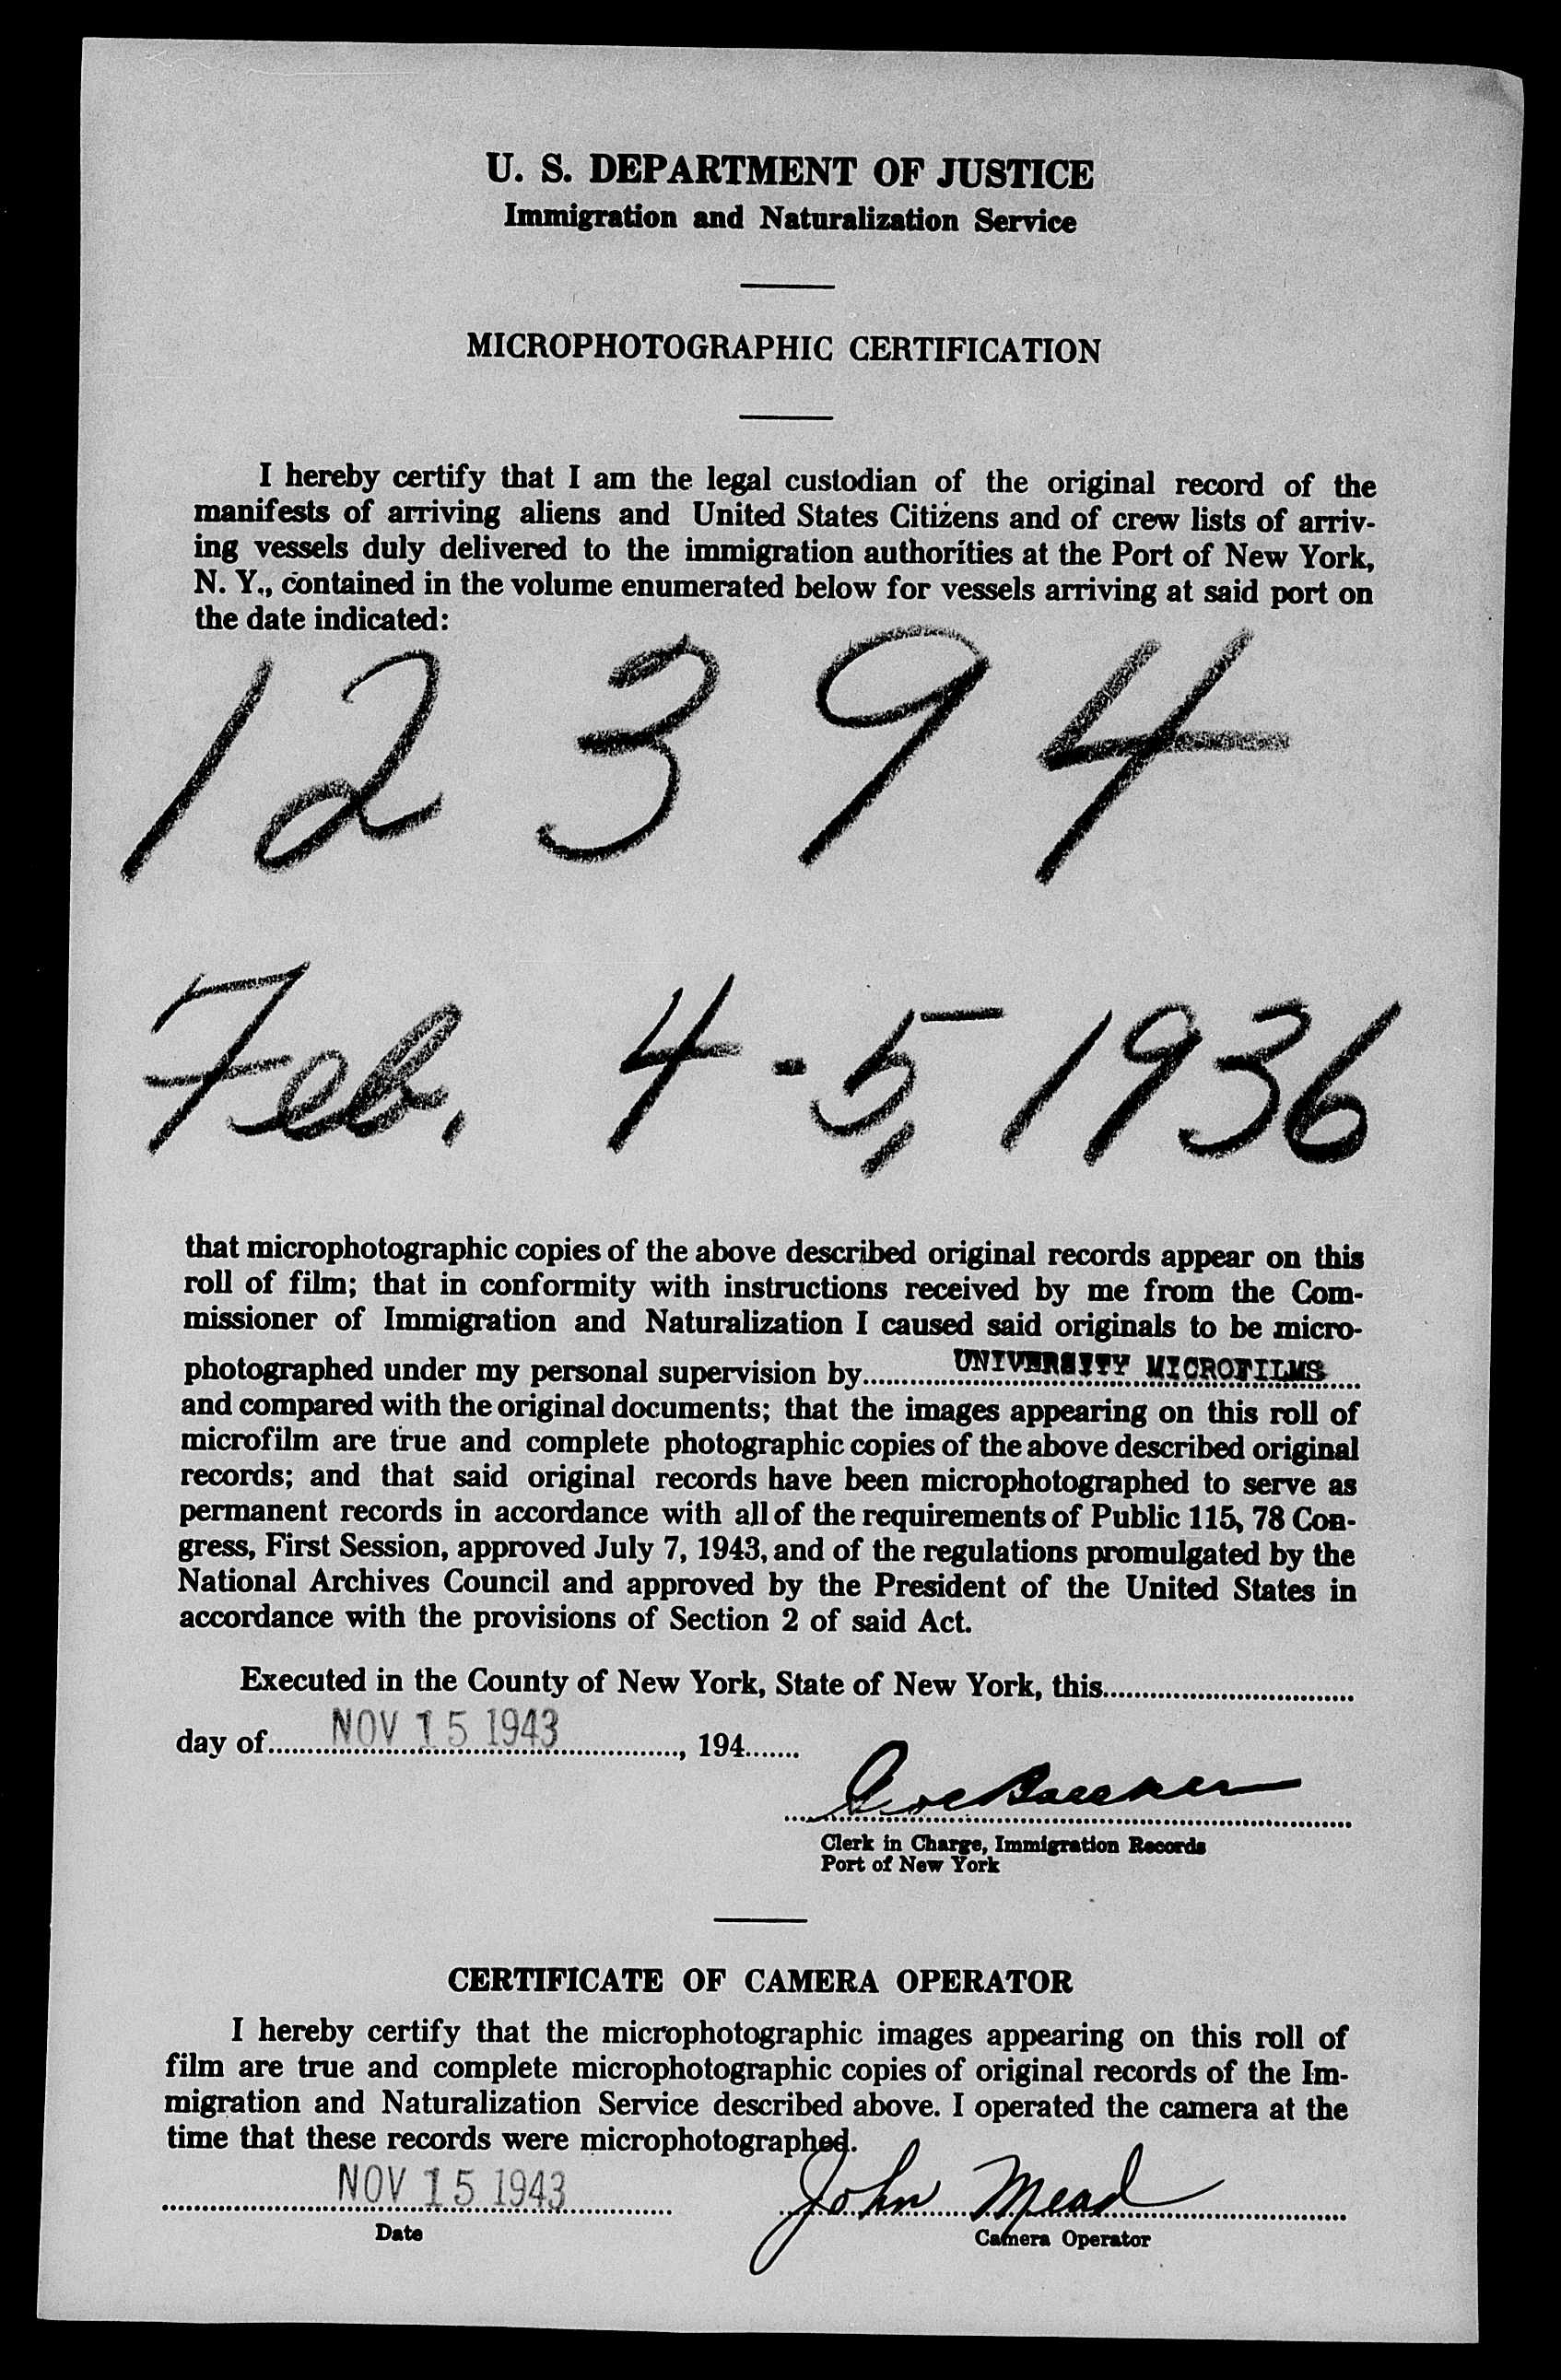 U. S. DEPARTMENT OF JUSTICE
Immigration and Naturalization Service
MICROPHOTOGRAPHIC CERTIFICATION
I hereby certify that I am the legal custodian of the original record of the
manifests of arriving aliens and United States Citizens and of crew lists of arriv-
ing vessels duly delivered to the immigration authorities at the Port of New York,
N. Y., contained in the volume enumerated below for vessels arriving at said port on
the date indicated:
12394
Feb. 4-5, 1936
that microphotographic copies of the above described original records appear on this
roll of film; that in conformity with instructions received by me from the Com-
missioner of Immigration and Naturalization I caused said originals to be micro-
photographed under my personal supervision by UNIVERSITY MICROFILMS
and compared with the original documents; that the images appearing on this roll of
microfilm are true and complete photographic copies of the above described original
records; and that said original records have been microphotographed to serve as
permanent records in accordance with all of the requirements of Public 115, 78 Con-
gress, First Session, approved July 7, 1943, and of the regulations promulgated by the
National Archives Council and approved by the President of the United States in
accordance with the provisions of Section 2 of said Act.
Executed in the County of New York, State of New York, this
day of NOV 15 1943, 194
Clerk in Charge, Immigration Records
Port of New York
CERTIFICATE OF CAMERA OPERATOR
I hereby certify that the microphotographic images appearing on this roll of
film are true and complete microphotographic copies of original records of the Im-
migration and Naturalization Service described above. I operated the camera at the
time that these records were microphotographed.
NOV 15 1943 John Mead
Date Camera Operator